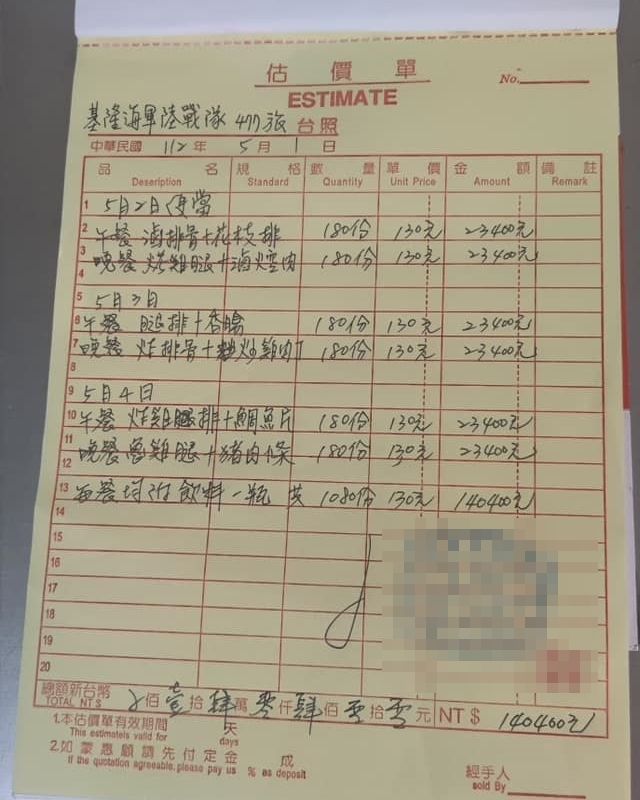 估價單
ESTIMATE
No.
基隆海軍陸戰隊 477旅 台照
中華民國 112 年 5 月 1 日
品名 規格 數量 單價 金額 備註
Deseription Standard Quantity Unit Price Amount Remark
1 5月2日便當
2 午餐 滷排骨+花枝排 180份 130元 23400元
3 晚餐 烤雞腿+滷焢肉 180份 130元 23400元
4
5 5月3日
6 午餐 腿排+香腸 180份 130元 23400元
7 晚餐 炸排骨+ 炒雞肉丁 180份 130元 23400元
8
9 5月4日
10 午餐 炸雞腿排+鯛魚片 180份 130元 23400元
11 晚餐 魯雞腿+豬肉條 180份 130元 23400元
12
13 每餐均附飲料一瓶 共 1080份 130元 140400元
14
15
16
17
18
19
20
總額新台幣 佰壹拾肆萬零仟肆佰零拾零元 NT$ 140400元
TOTAL NT$
1.本估價單有效期間 天
This estimatels valid for days
2.如蒙惠顧請先付定金 成
If the quotation agreeable, please pay us % as deposit
經手人
sold By